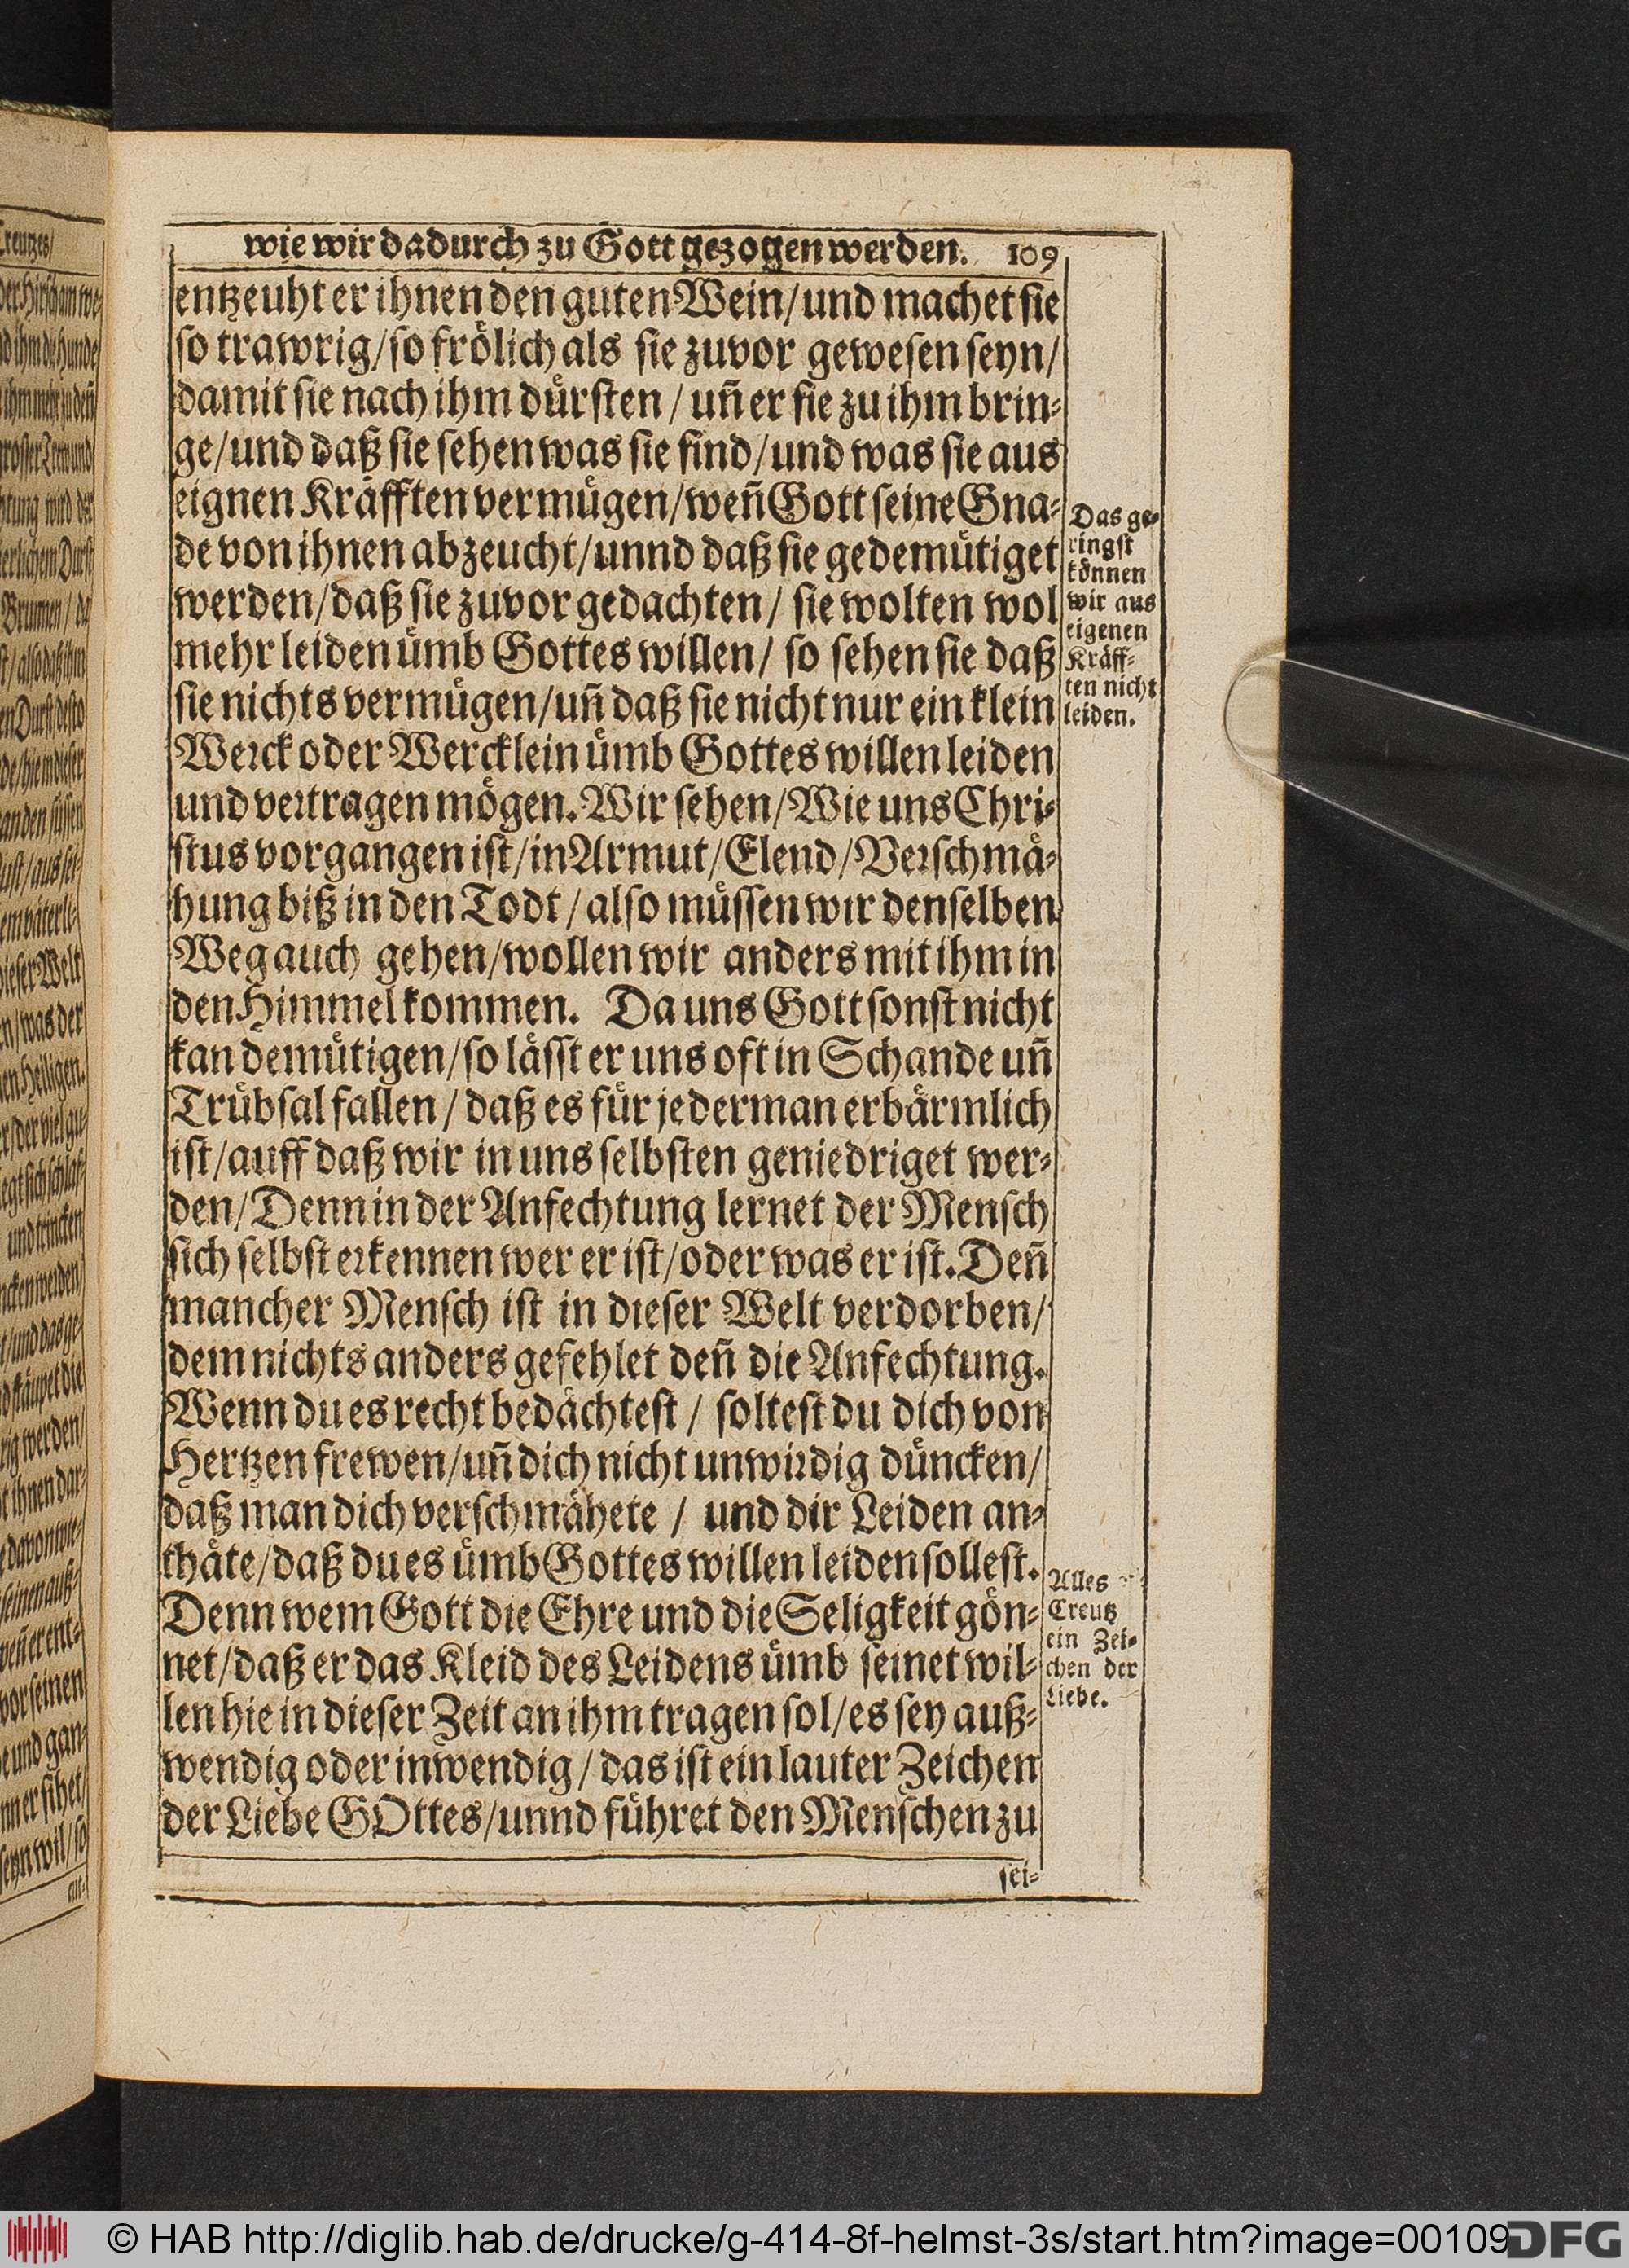 wie wir dadurch zu Gott gezogen werden. 109
entzeuht er ihnen den guten Wein/ und machet sie
so trawrig/ so frölich als sie zuvor gewesen seyn/
damit sie nach ihm dürsten/ uñ er sie zu ihm brin-
ge/ und daß sie sehen was sie sind/ und was sie aus
eignen Kräfften vermügen/ weñ Gott seine Gna-
de von ihnen abzeucht/ unnd daß sie gedemütiget
werden/ daß sie zuvor gedachten/ sie wolten wol
mehr leiden ümb Gottes willen/ so sehen sie daß
sie nichts vermügen/ uñ daß sie nicht nur ein klein
Werck oder Wercklein ümb Gottes willen leiden
und vertragen mögen. Wir sehen/ Wie uns Chri-
stus vorgangen ist/ in Armut/ Elend/ Verschmä-
hung biß in den Todt/ also müssen wir denselben
Weg auch gehen/ wollen wir anders mit ihm in
den Himmel kommen. Da uns Gott sonst nicht
kan demütigen/ so lässt er uns oft in Schande uñ
Trübsal fallen/ daß es für jederman erbärmlich
ist/ auff daß wir in uns selbsten geniedriget wer-
den/ Denn in der Anfechtung lernet der Mensch
sich selbst erkennen wer er ist/ oder was er ist. Deñ
mancher Mensch ist in dieser Welt verdorben/
dem nichts anders gefehlet deñ die Anfechtung.
Wenn du es recht bedächtest/ soltest du dich von
Hertzen frewen/ uñ dich nicht unwirdig düncken/
daß man dich verschmähete/ und dir Leiden an-
thäte/ daß du es ümb Gottes willen leiden sollest.
Denn wem Gott die Ehre und die Seligkeit gön-
net/ daß er das Kleid des Leidens ümb seinet wil-
len hie in dieser Zeit an ihm tragen sol/ es sey auß-
wendig oder inwendig/ das ist ein lauter Zeichen
der Liebe GOttes/ unnd führet den Menschen zu
sei-
Das ge-
ringst
können
wir aus
eigenen
Kräff-
ten nicht
leiden.
Alles
Creutz
ein Zei-
chen der
Liebe.
© HAB http://diglib.hab.de/drucke/g-414-8f-helmst-3s/start.htm?image=00109
DFG